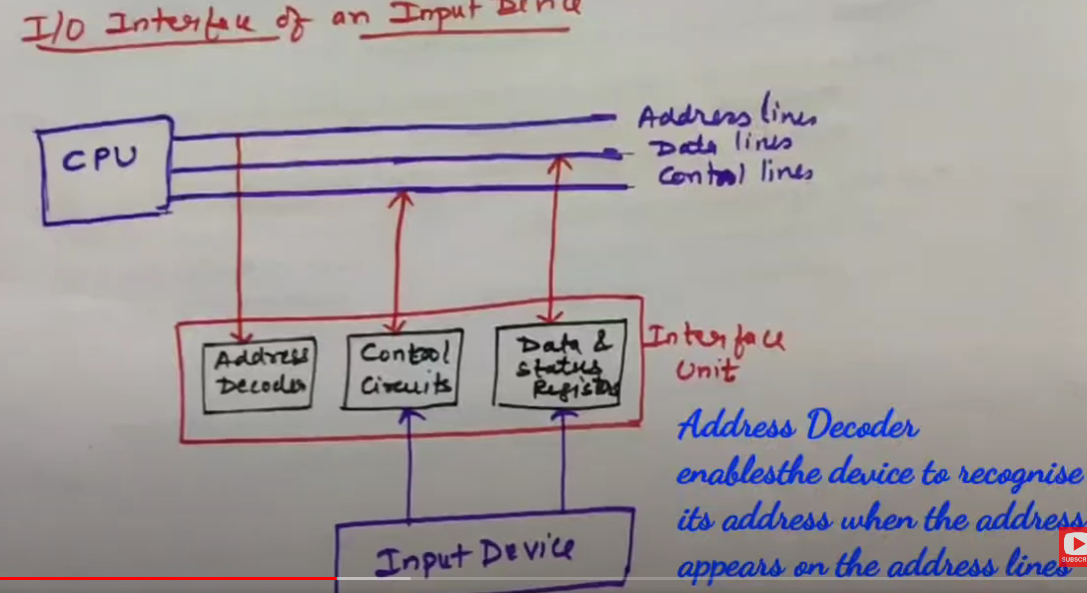 I/O Interface of an Input Device
CPU
Address lines
Data lines
Control lines
Address
Decoder
Control
Circuits
Data &
Status
Registers
Interface
Unit
Input Device
Address Decoder
enablesthe device to recognise
its address when the address
appears on the address lines
SUBSCR